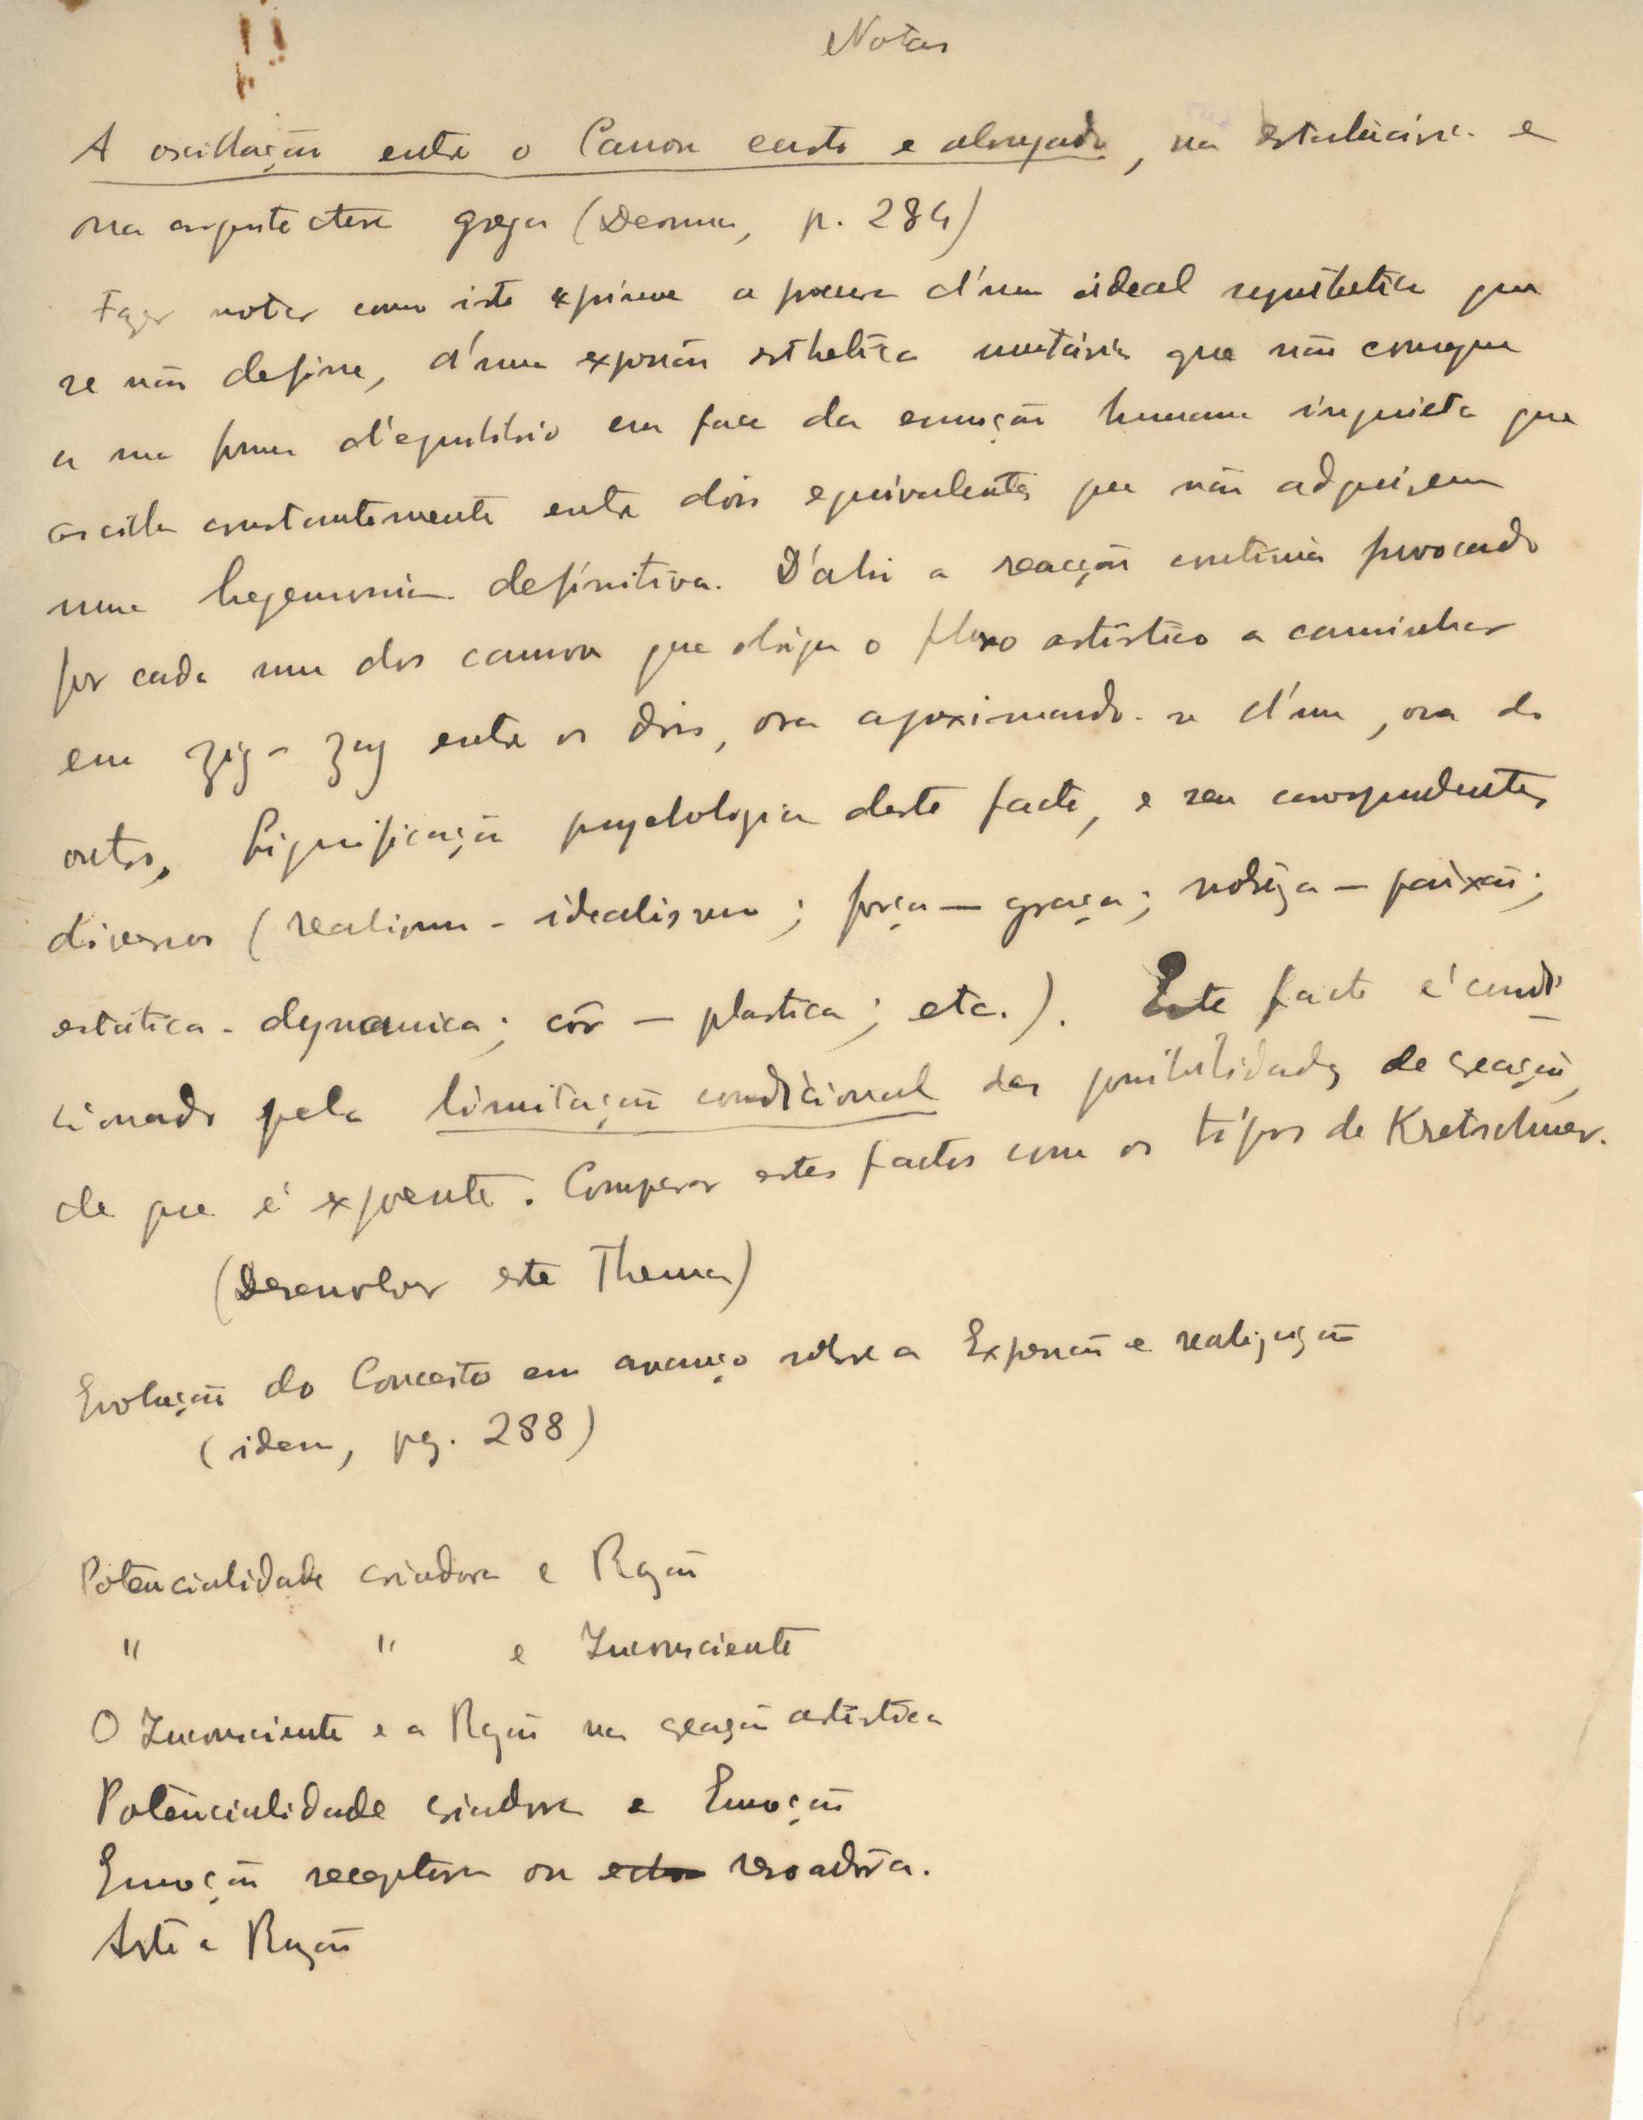 Notas
A oscillação entre o Canon curto e alongado, na estatuária e
na arquitectura grega (Deonna, p. 284)
Fazer notar como isto exprime a procura d'um ideal synthetico que
se não define, d'uma expressão esthetica unitária que não consegue
a sua forma d'equilibrio em face da emoção humana inquieta que
oscilla constantemente entre dois equivalentes que não adquirem
uma hegemonia definitiva. D'ahi a reacção continua provocada
por cada um dos canons que obriga o fluxo artístico a caminhar
em zig-zag entre os dois, ora aproximando-se d'um, ora do
outro. Significação psychologica deste facto, e seus correspondentes
diversos (realismo - idealismo; força — graça; nobreza — paixão;
estatica - dynamica; côr — plastica; etc.). Este facto é condi-
cionado pela limitação condicional das possibilidades de creação,
de que é expoente. Comparar estes factos com os typos de Kretschmer.
(Desenvolver este Thema)
Evolução do Conceito em avanço sobre a Expressão e realização
(idem, pg. 288)
Potencialidade criadora e Razão
" " e Inconsciente
O Inconsciente e a Razão na creação artistica
Potencialidade criadora e Emoção
Emoção receptora ou
Arte e Razão